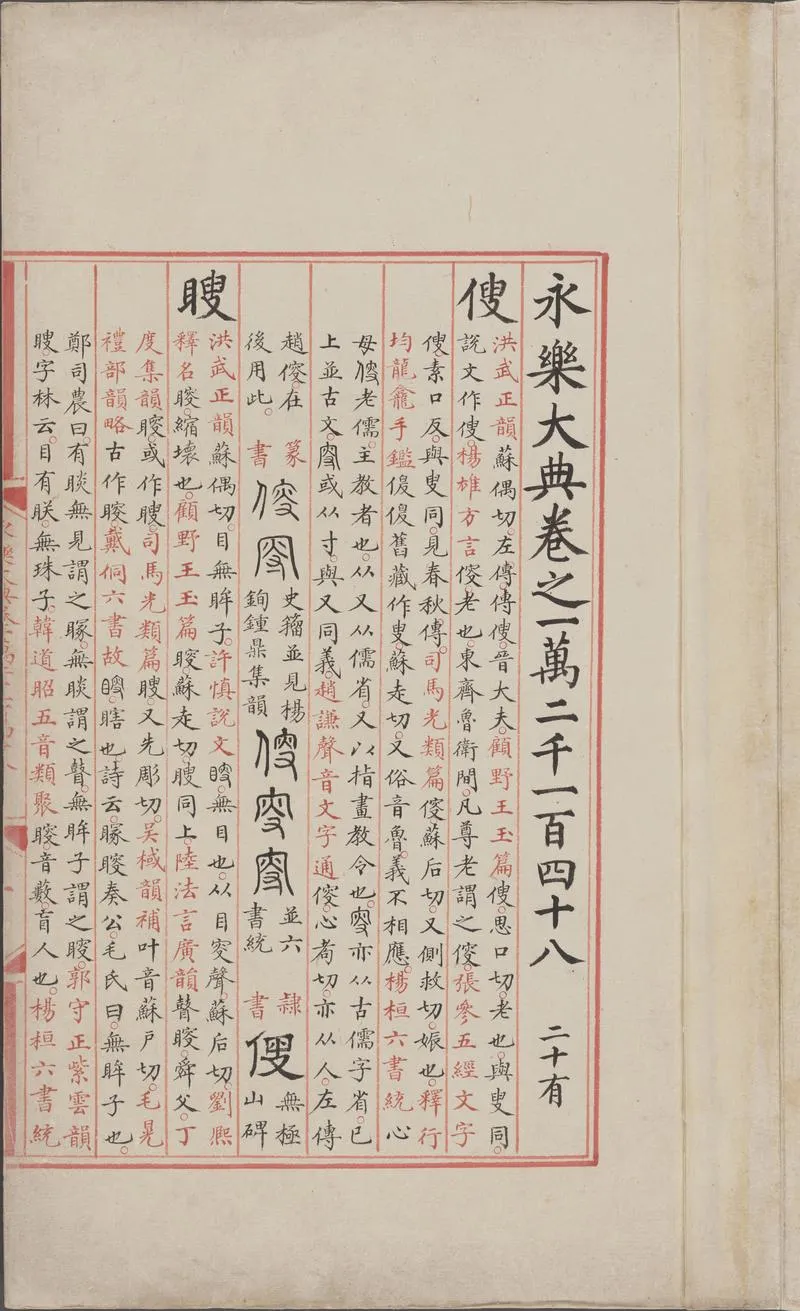 永樂大典卷之一萬二千一百四十八 二十有
傁
洪武正韻蘇偶切左傳傳傁晉大夫顧野王玉篇傁思口切老也與叟同
說文作傁楊雄方言傁老也東齊魯衛間凡尊老謂之傁張參五經文字
傁素口反與叟同見春秋傳司馬光類篇傁蘇后切又側救切娠也釋行
均龍龕手鑑傁傁舊藏作叟蘇走切又俗音魯義不相應楊桓六書統心
母傁老儒主教者也从又从儒省又以指畫教令也叜亦从古儒字省已
上並古文叜或从寸與又同義趙謙聲音文字通傁心耇切亦从人左傳
趙傁在
後用此
篆書
傁叜
史籀並見楊
鉤鍾鼎集韻
傁叜叜
並六
書統
隸書
傁
無極
山碑
瞍
洪武正韻蘇偶切目無眸子許慎說文瞍無目也从目叜聲蘇后切劉熙
釋名瞍縮壞也顧野王玉篇瞍蘇走切瞍同上陸法言廣韻瞽瞍舜父丁
度集韻瞍或作瞍司馬光類篇瞍又先彫切吳棫韻補叶音蘇戶切毛晃
禮部韻略古作瞍戴侗六書故瞍瞎也詩云矇瞍奏公毛氏曰無眸子也
鄭司農曰有睒無見謂之矇無睒謂之瞽無眸子謂之瞍郭守正紫雲韻
瞍字林云目有朕無珠子韓道昭五音類聚瞍音藪盲人也楊桓六書統